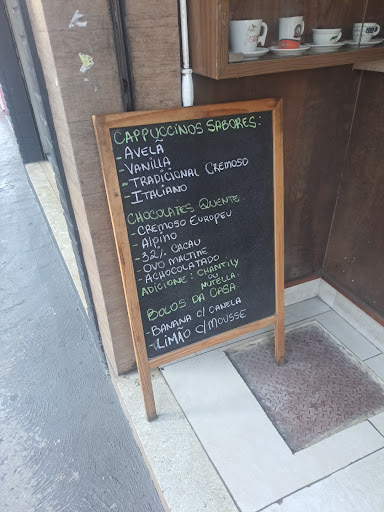 CAPPUCCINOS SABORES:
- AVELÃ
- VANILLA
- TRADICIONAL CREMOSO
- ITALIANO
CHOCOLATES QUENTE
- CREMOSO EUROPEU
- ALPINO
- 32% CACAU
- OVO MALTINE
- ACHOCOLATADO
ADICIONE: CHANTILY
OU
NUTELLA
BOLOS DA CASA
- BANANA C/ CANELA
- LIMÃO C/ MOUSSE